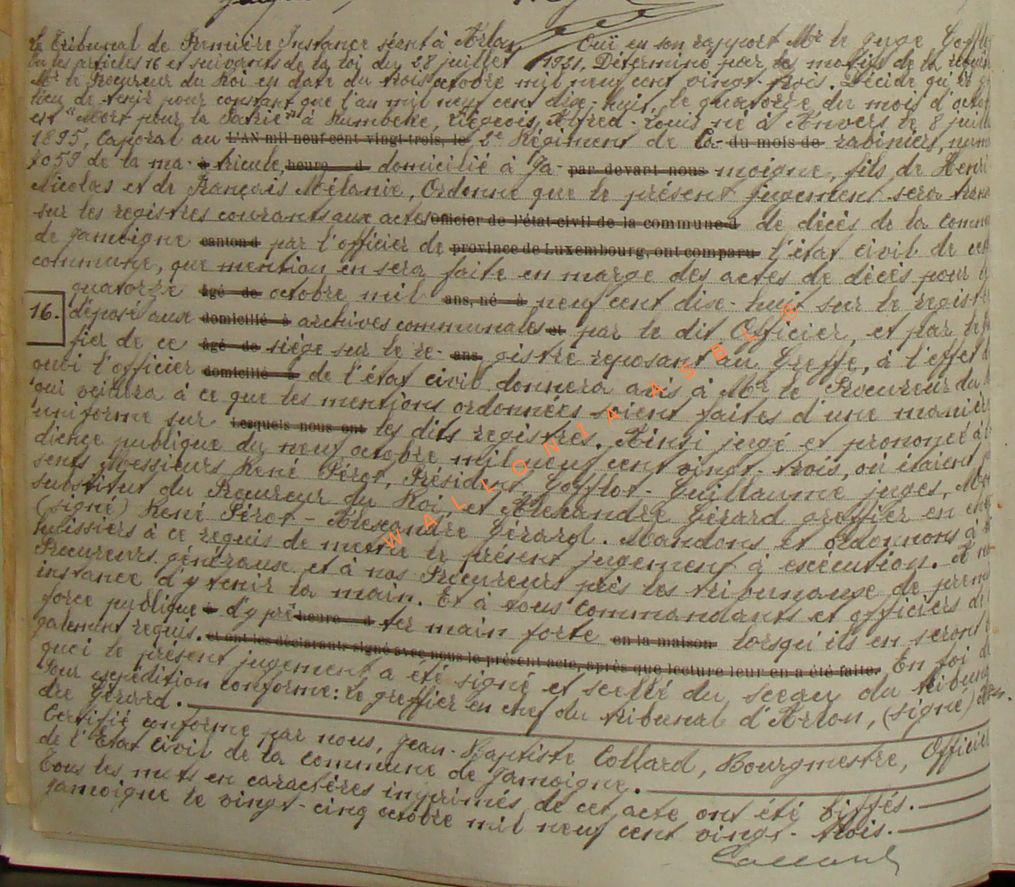 Le Tribunal de Première Instance séant à Arlon, Ouï en son rapport Mr le juge
Vu les articles 16 et suivants de la loi du 28 juillet 1921. Déterminé par les motifs de la
Mr le Procureur du Roi en date du trois octobre mil neuf cent vingt-trois. Décide qu'il y a
lieu de tenir pour constant que l'an mil neuf cent dix-huit, le quatorze du mois d'octo
est "Mort pour la Patrie" à Rumbeke, Liégeois, Alfred-Louis né à Anvers le 8 juill
1895, Caporal au L'AN mil neuf cent vingt-trois, le 2e Régiment de Ca- du mois de rabiniers, num
1059 de la ma- à tricule, heure d domicilié à Ja- par devant nous moigne, fils de Henri
Nicolas et de François Mélanie, Ordonne que le présent jugement sera trans
sur les registres courants aux actes officier de l'état-civil de la commune d de décès de la comm
de Jamoigne canton d par l'officier de province de Luxembourg, ont comparu l'état civil de cet
commune, que mention en sera faite en marge des actes de décès pour le
quatorze âgé de octobre mil ans, né à neuf cent dix-huit sur le registre
16. déposé aux domicilié à archives communales et par le dit Officier, et par le
fier de ce âgé de siège sur le re- ans, gistre reposant au Greffe, à l'effet d
quoi l'officier domicilié à de l'état civil donnera avis à Mr le Procureur du
qui veillera à ce que les mentions ordonnées soient faites d'une manière
uniforme sur Lesquels nous ont les dits registres. Ainsi jugé et prononcé à
dience publique du neuf octobre mil neuf cent vingt-trois, où étaient
sents Messieurs René Pérot, Président, Guillaume juges,
substitut du Procureur du Roi, et Alexandre Gérard greffier en chef
(signé) René Pérot - Alexandre Gérard. Mandons et ordonnons à
huissiers à ce requis de mettre le présent jugement à exécution. A
Procureurs généraux et à nos Procureurs près les tribunaux de prem
instance d'y tenir la main. Et à tous commandants et officiers de
force publique à d'y prê heure d ter main forte en la maison lorsqu'ils en seront
galement requis. et ont les déclarants, signé avec nous le présent acte, après que lecture leur en a été faite. En foi de
quoi le présent jugement a été signé et scellé du sceau du tribun
Pour expédition conforme: le greffier en chef du tribunal d'Arlon, (signé) Alexan
dre Gérard.
Certifié conforme par nous, Jean-Baptiste Collard, Bourgmestre, Officier
de l'Etat Civil de la commune de Jamoigne.
Tous les mots en caractères imprimés de cet acte ont été biffés.
Jamoigne le vingt-cinq octobre mil neuf cent vingt-trois.
Collard
WALLONIA ASBL ©